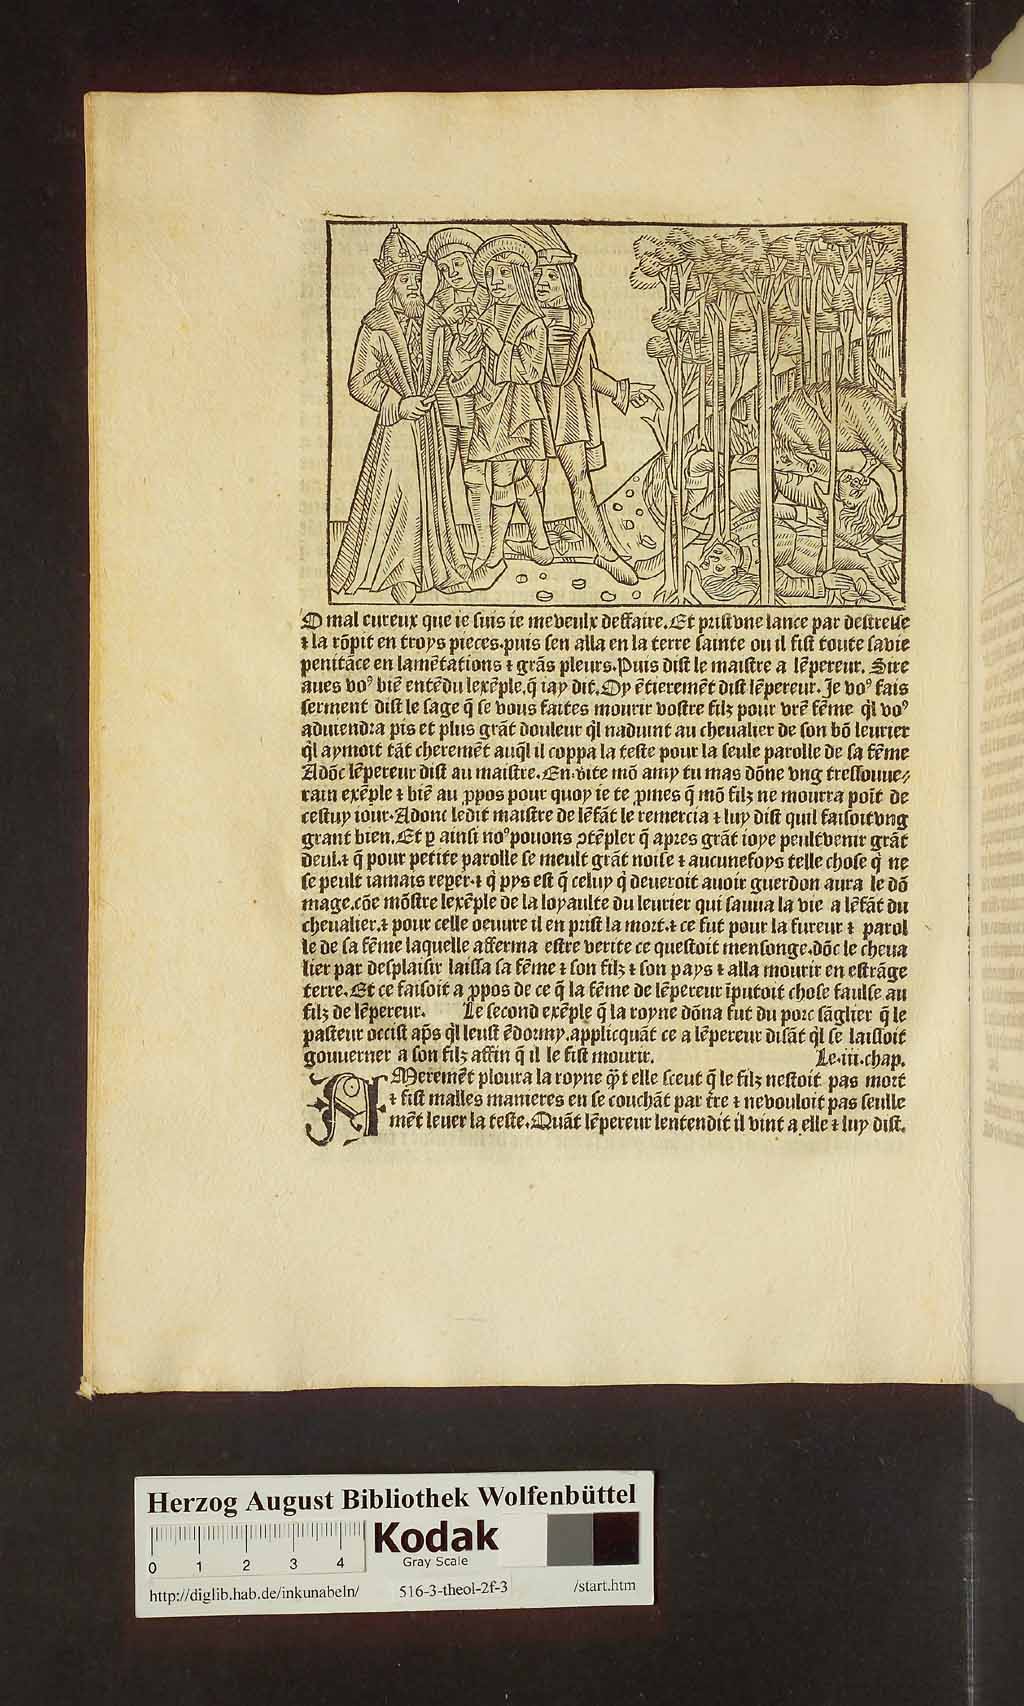 O mal eureux que ie suis ie me veulx deffaire. Et prist vne lance par destresse
⁊ la rõpit en troys pieces. puis sen alla en la terre sainte ou il fist toute sa vie
penitãce en lamẽtations ⁊ grãs pleurs. Puis dist le maistre a lẽpereur. Sire
aues voꝰ biẽ entẽdu lexẽple, q̃ iay dit. Oy ẽtieremẽt dist lẽpereur. Je voꝰ fais
serment dist le sage q̃ se vous faites mourir vostre filz pour vrẽ fẽme q̃l voꝰ
aduiendra pis et plus grãt douleur q̃l naduint au cheualier de son bõ leurier
q̃l aymoit tãt cheremẽt auq̃l il coppa la teste pour la seule parolle de sa fẽme
Adõc lẽpereur dist au maistre. En vite mõ amy tu mas dõne vng tressouue⸗
rain exẽple ⁊ biẽ au ꝓpos pour quoy ie te ꝓmes q̃ mõ filz ne mourra poĩt de
cestuy iour. Adonc ledit maistre de lẽfãt le remercia ⁊ luy dist quil faisoit vng
grant bien. Et ꝑ ainsi noꝰ pouons ꝯtẽpler q̃ apres grãt ioye peult venir grãt
deul. ⁊ q̃ pour petite parolle se meult grãt noise ⁊ aucunefoys telle chose q̃ ne
se peult iamais reper. ⁊ q̃ pys est q̃ celuy q̃ deueroit auoir guerdon aura le dõ
mage. cõe mõstre lexẽple de la loyaulte du leurier qui sauua la vie a lẽfãt du
cheualier. ⁊ pour celle oeuure il en prist la mort. ⁊ ce fut pour la fureur ⁊ parol
le de sa fẽme laquelle afferma estre verite ce questoit mensonge. dõc le cheua
lier par desplaisir laissa sa fẽme ⁊ son filz ⁊ son pays ⁊ alla mourir en estrãge
terre. Et ce faisoit a ꝓpos de ce q̃ la fẽme de lẽpereur ĩputoit chose faulse au
filz de lẽpereur. Le second exẽple q̃ la royne dõna fut du porc sãglier q̃ le
pasteur occist ap̃s q̃l leust ẽdormy. applicquãt ce a lẽpereur disãt q̃l se laissoit
gouuerner a son filz affin q̃ il le fist mourir. Le .iii. chap.
AMeremẽt ploura la royne q̃t elle sceut q̃ le filz nestoit pas mort
⁊ fist malles manieres en se couchãt par tr̃e ⁊ ne vouloit pas seulle
mẽt leuer la teste. Quãt lẽpereur lentendit il vint a elle ⁊ luy dist.
Herzog August Bibliothek Wolfenbüttel
Kodak
Gray Scale
0 1 2 3 4
http://diglib.hab.de/inkunabeln/ 516-3-theol-2f-3 /start.htm